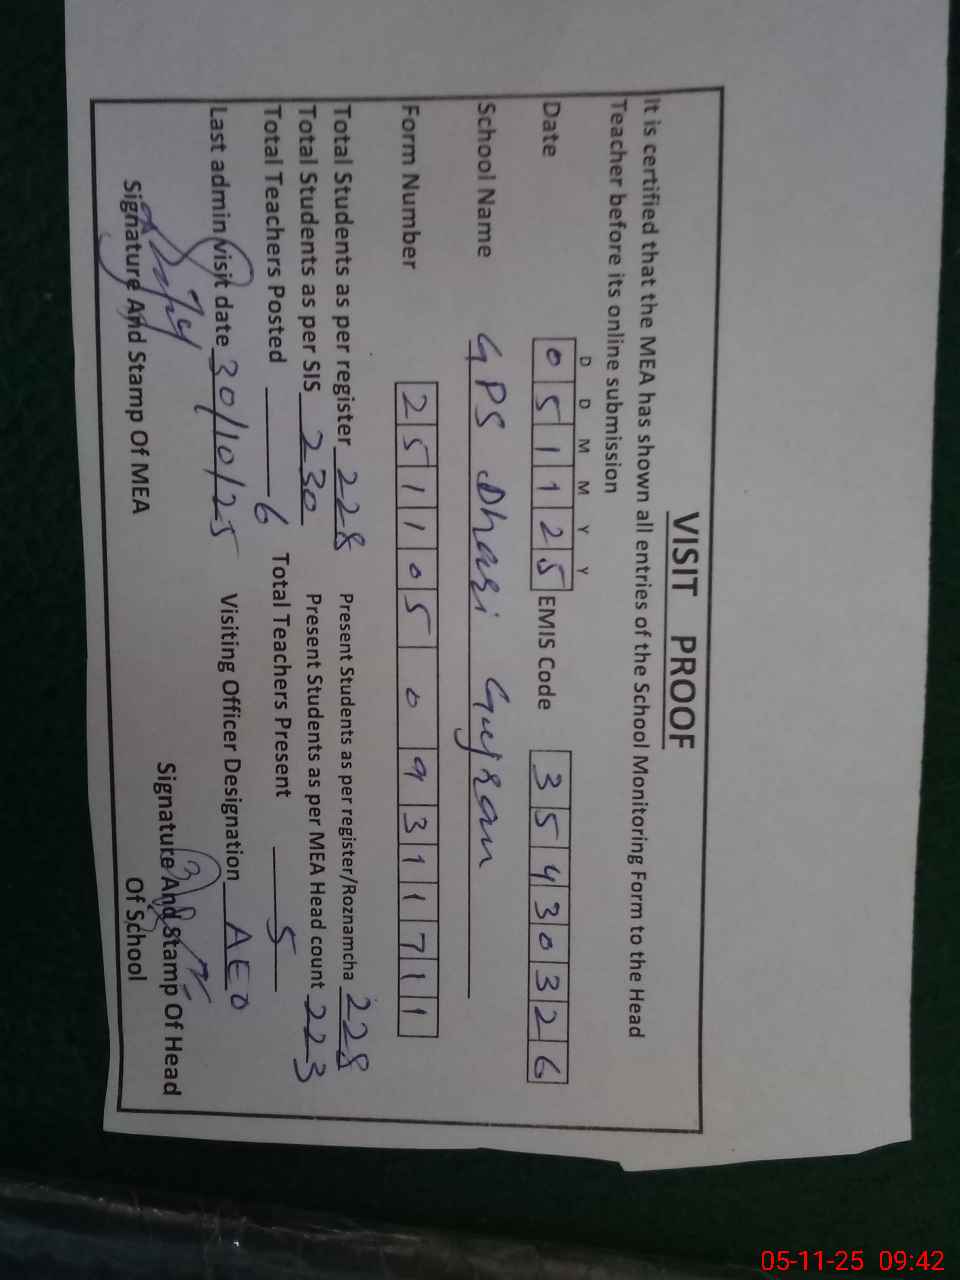 VISIT PROOF
It is certified that the MEA has shown all entries of the School Monitoring Form to the Head
Teacher before its online submission
D D M M Y Y
Date 0 5 1 1 2 5 EMIS Code 3 5 4 3 0 3 2 6
School Name GPS Dhari Gujran
Form Number 2 5 1 1 0 5 0 9 3 1 1 7 1 1
Total Students as per register 228 Present Students as per register/Roznamcha 228
Total Students as per SIS 230 Present Students as per MEA Head count 223
Total Teachers Posted 6 Total Teachers Present 5
Last admin visit date 30/10/25 Visiting Officer Designation AEO
Signature And Stamp Of MEA Signature And Stamp Of Head
Of School
05-11-25 09:42